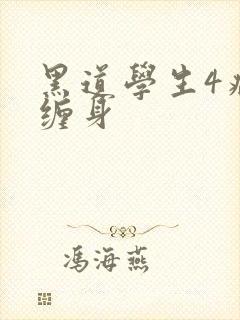 黑道學生4
缠身
馮海燕